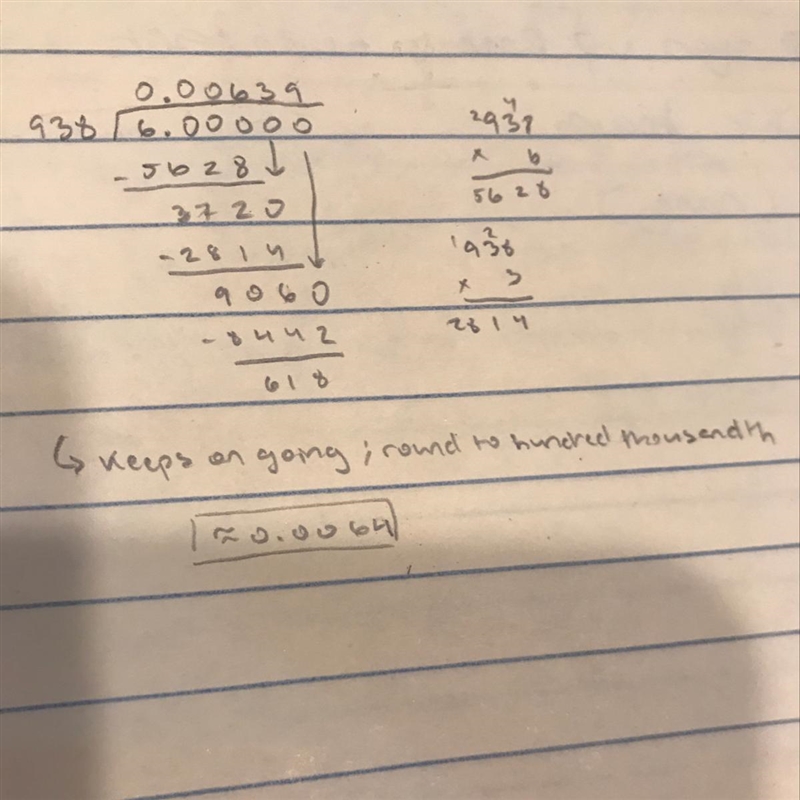 0.00639
938 6.00000
-5628
3720
-2814
9060
-8442
618
2 4
938
x 6
5628
1 2
938
x 3
2814
↳ Keeps on going ; round to hundred thousandth
≈0.0064